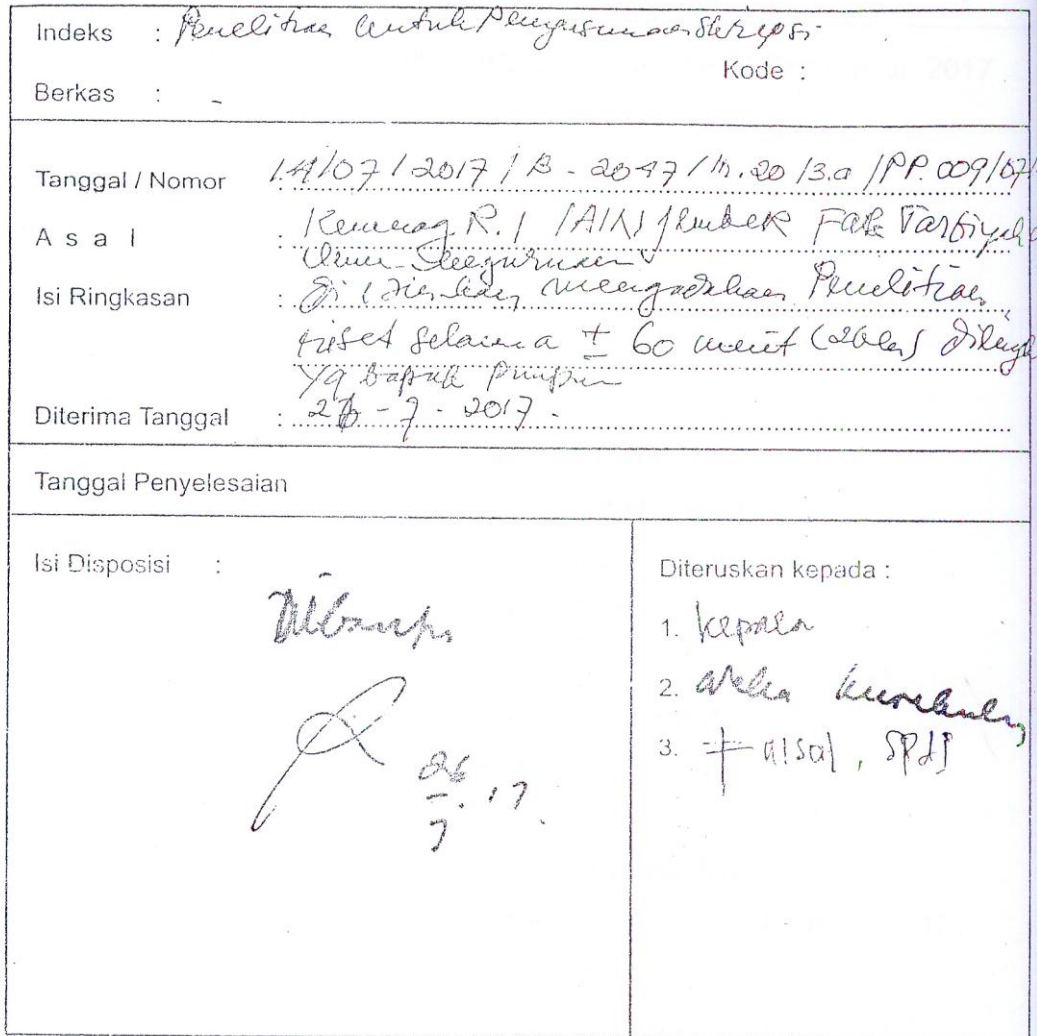 Indeks : Penelitian untuk Penyusunan Skripsi
Kode :
Berkas : -
Tanggal / Nomor 14/07/2017 / B - 2047/In.20/3.a/PP.009/07/
A s a l : Kemenag R.I IAIN Jember Fak Tarbiyah
Ilmu Keguruan
Isi Ringkasan : Di izinkan mengadakan Penelitian
riset selama ± 60 menit dilingk
yg bapak pimpin
Diterima Tanggal : 26 - 7 - 2017 -
Tanggal Penyelesaian
Isi Disposisi :
26/7.17.
Diteruskan kepada :
1. kepala
2. Waka kurikulum
3. Faisal, SPdI